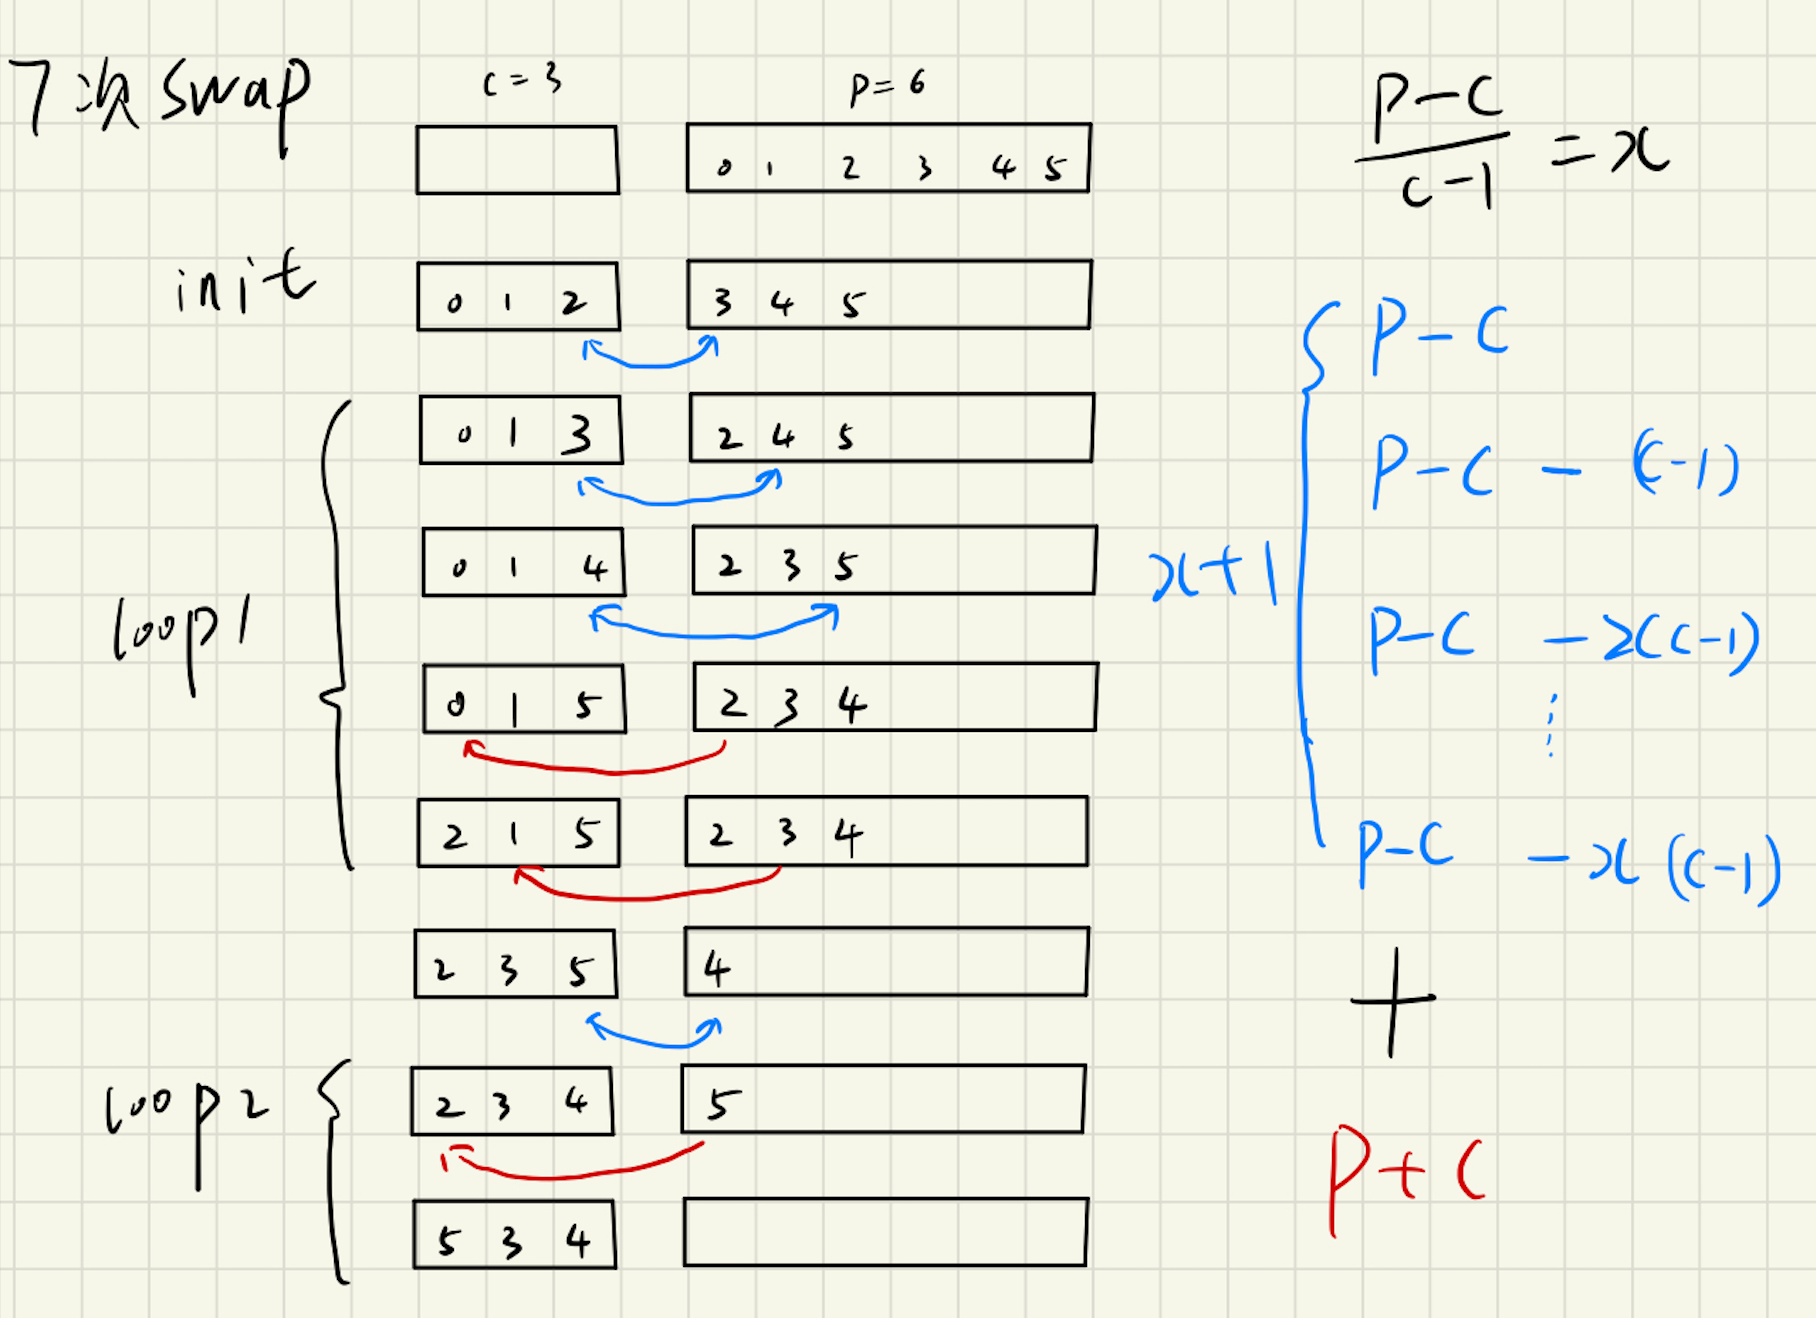 7次swap
c=3
p=6
0 1 2 3 4 5
init
0 1 2
3 4 5
0 1 3
2 4 5
loop1
0 1 4
2 3 5
0 1 5
2 3 4
2 1 5
2 3 4
2 3 5
4
loop2
2 3 4
5
5 3 4
P-C
c-1
=x
x+1
P-C
P-C - (C-1)
P-C -2(C-1)
⋮
P-C -x(C-1)
+
P+C